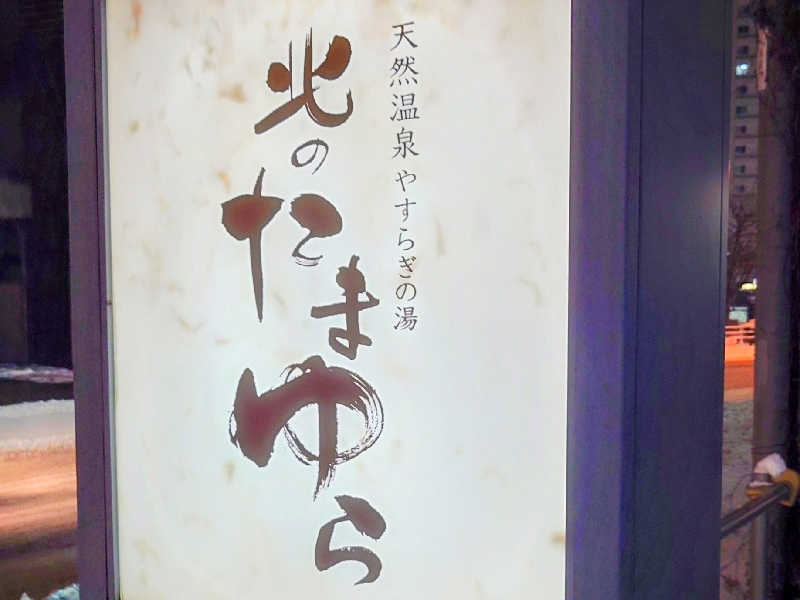 天然温泉 やすらぎの湯
北のたまゆら